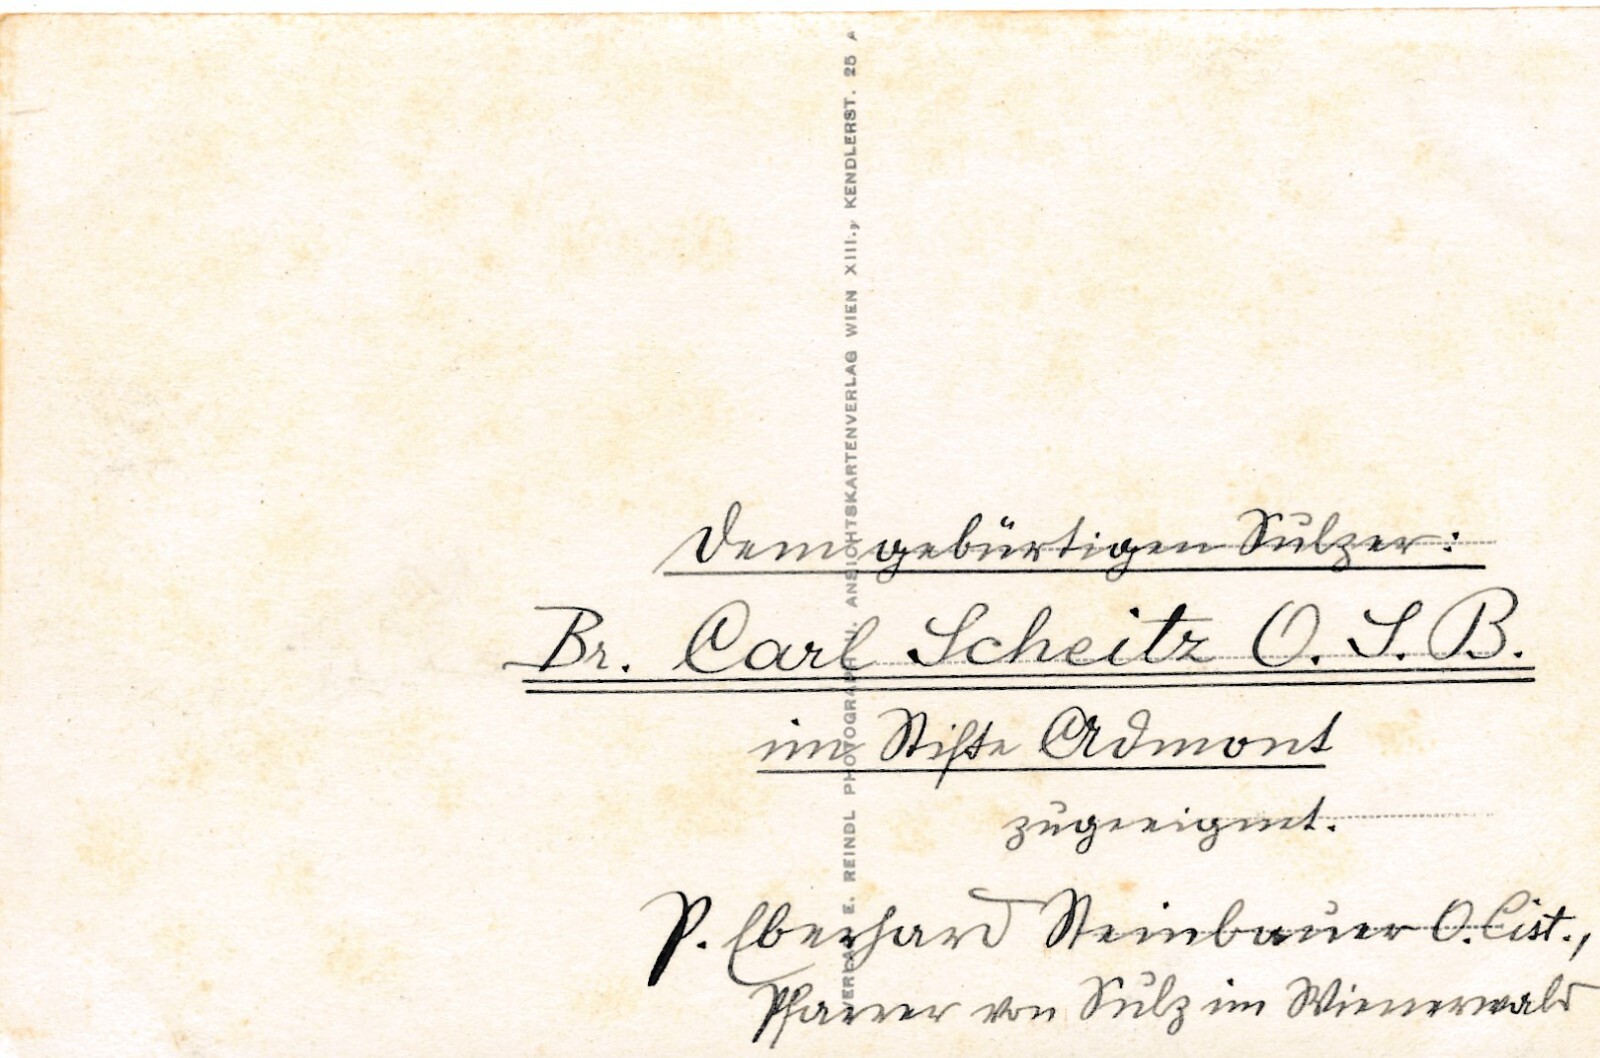 Dem gebürtigen Sulzer:
Br. Carl Scheitz O. S. B.
im Stifte Admont
zugeeignet.
P. Eberhard Steinbauer O. Cist.,
Pfarrer von Sulz im Wienerwald
VERLAG E. REINDL PHOTOGRAPH U. ANSICHTSKARTENVERLAG WIEN XIII., KENDLERST. 25 A